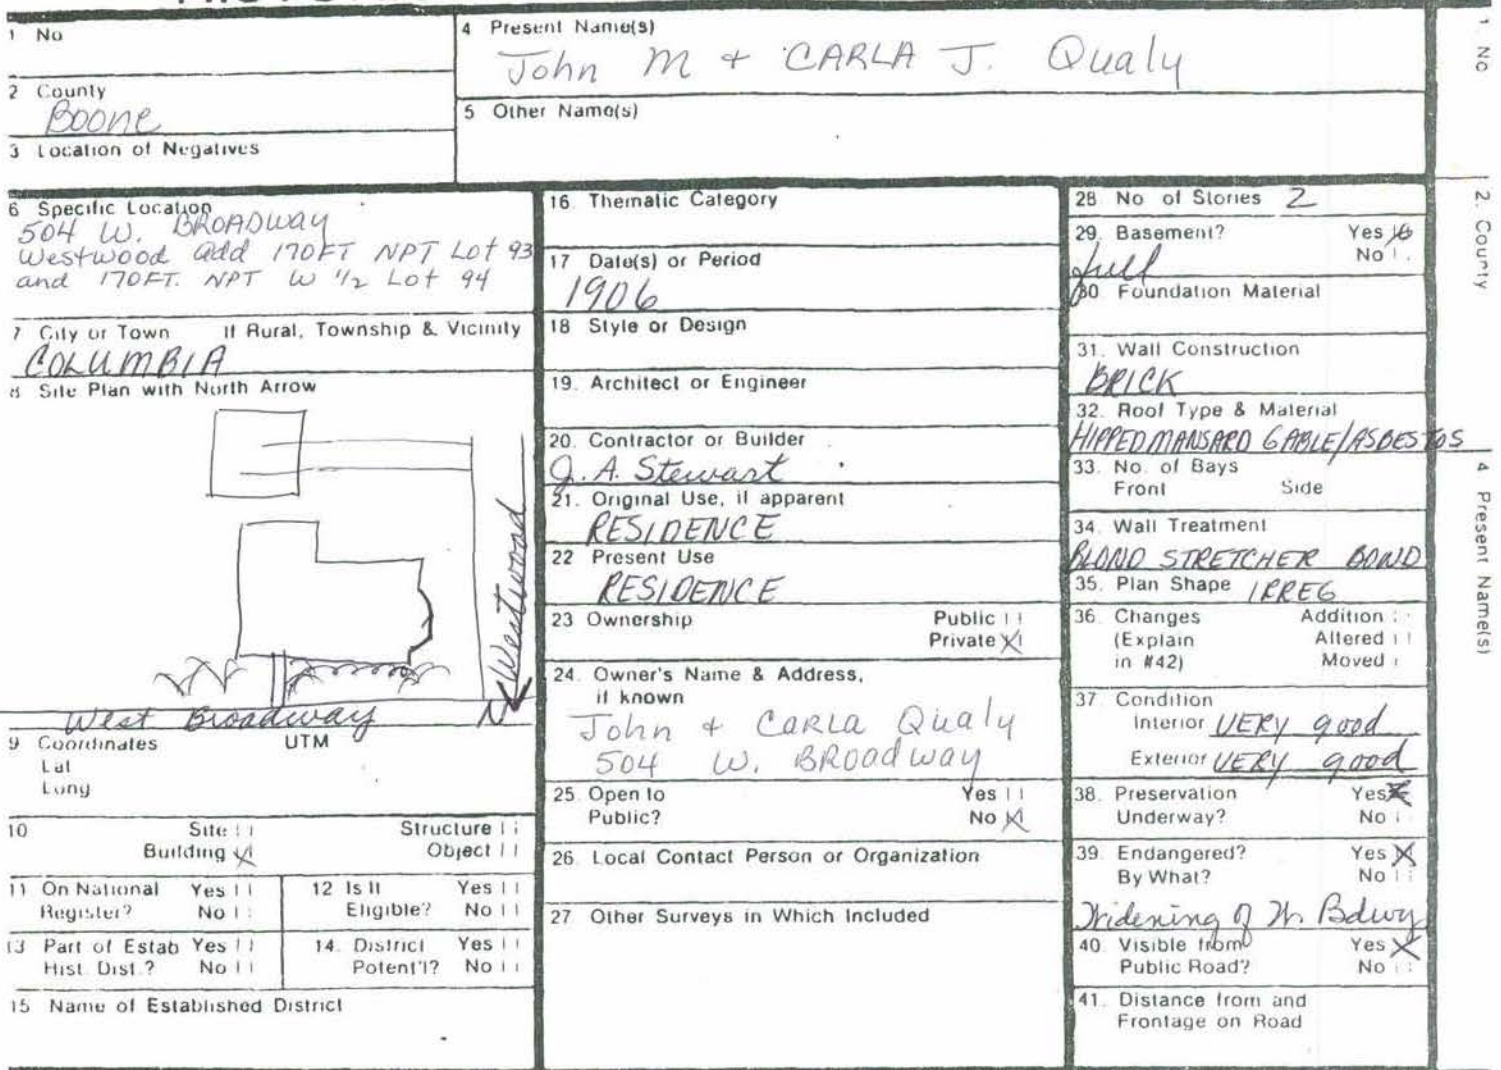 1 No
4 Present Name(s)
John M + CARLA J. Qualy
2 County
Boone
5 Other Name(s)
3 Location of Negatives
6 Specific Location
504 W. BROADWAY
Westwood add 170FT NPT Lot 93
and 170FT. NPT W 1/2 Lot 94
7 City or Town If Rural, Township & Vicinity
COLUMBIA
8 Site Plan with North Arrow
Westwood
West Broadway
N
9 Coordinates UTM
Lat
Long
10 Site Structure
Building X Object
11 On National Register? Yes No
12 Is It Eligible? Yes No
13 Part of Estab Hist. Dist.? Yes No
14. District Potent'l? Yes No
15 Name of Established District
16. Thematic Category
17 Date(s) or Period
1906
18 Style or Design
19. Architect or Engineer
20. Contractor or Builder
J.A. Stewart
21. Original Use, if apparent
RESIDENCE
22 Present Use
RESIDENCE
23 Ownership Public
Private X
24. Owner's Name & Address,
if known
John + CARLA Qualy
504 W. BROADWAY
25. Open to Yes
Public? No X
26. Local Contact Person or Organization
27 Other Surveys in Which Included
28 No of Stories 2
29. Basement? Yes X
No
full
30 Foundation Material
31. Wall Construction
BRICK
32. Roof Type & Material
HIPPED MANSARD GABLE/ASBESTOS
33. No. of Bays
Front Side
34. Wall Treatment
BLOND STRETCHER BOND
35. Plan Shape IRREG
36. Changes Addition
(Explain Altered
in #42) Moved
37 Condition
Interior VERY good
Exterior VERY good
38. Preservation Yes X
Underway? No
39. Endangered? Yes X
By What? No
Widening of W. Bdwy
40. Visible from Yes X
Public Road? No
41. Distance from and
Frontage on Road
1. No
2. County
4 Present Name(s)